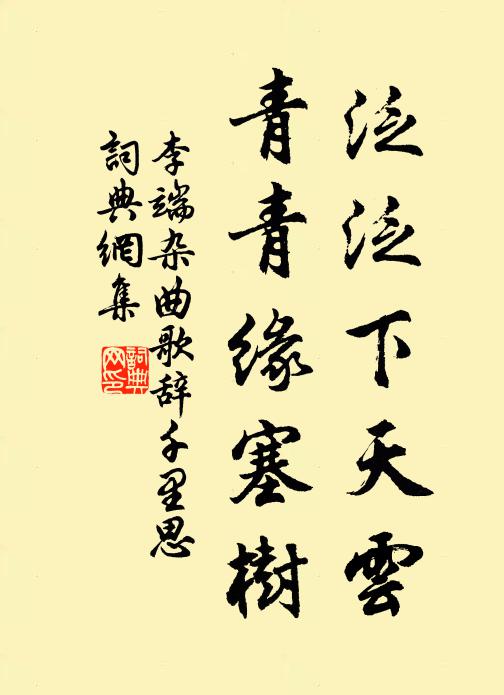 泛泛下天雲
青青緣塞樹
李端杂曲歌辞千里思
詞典網集
詞典网印